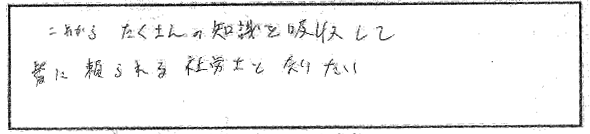 これから たくさんの知識を吸収して
皆に 頼られる 社労士と なりたい